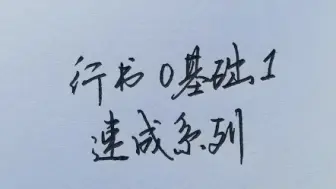 行书0基础1
速成系列